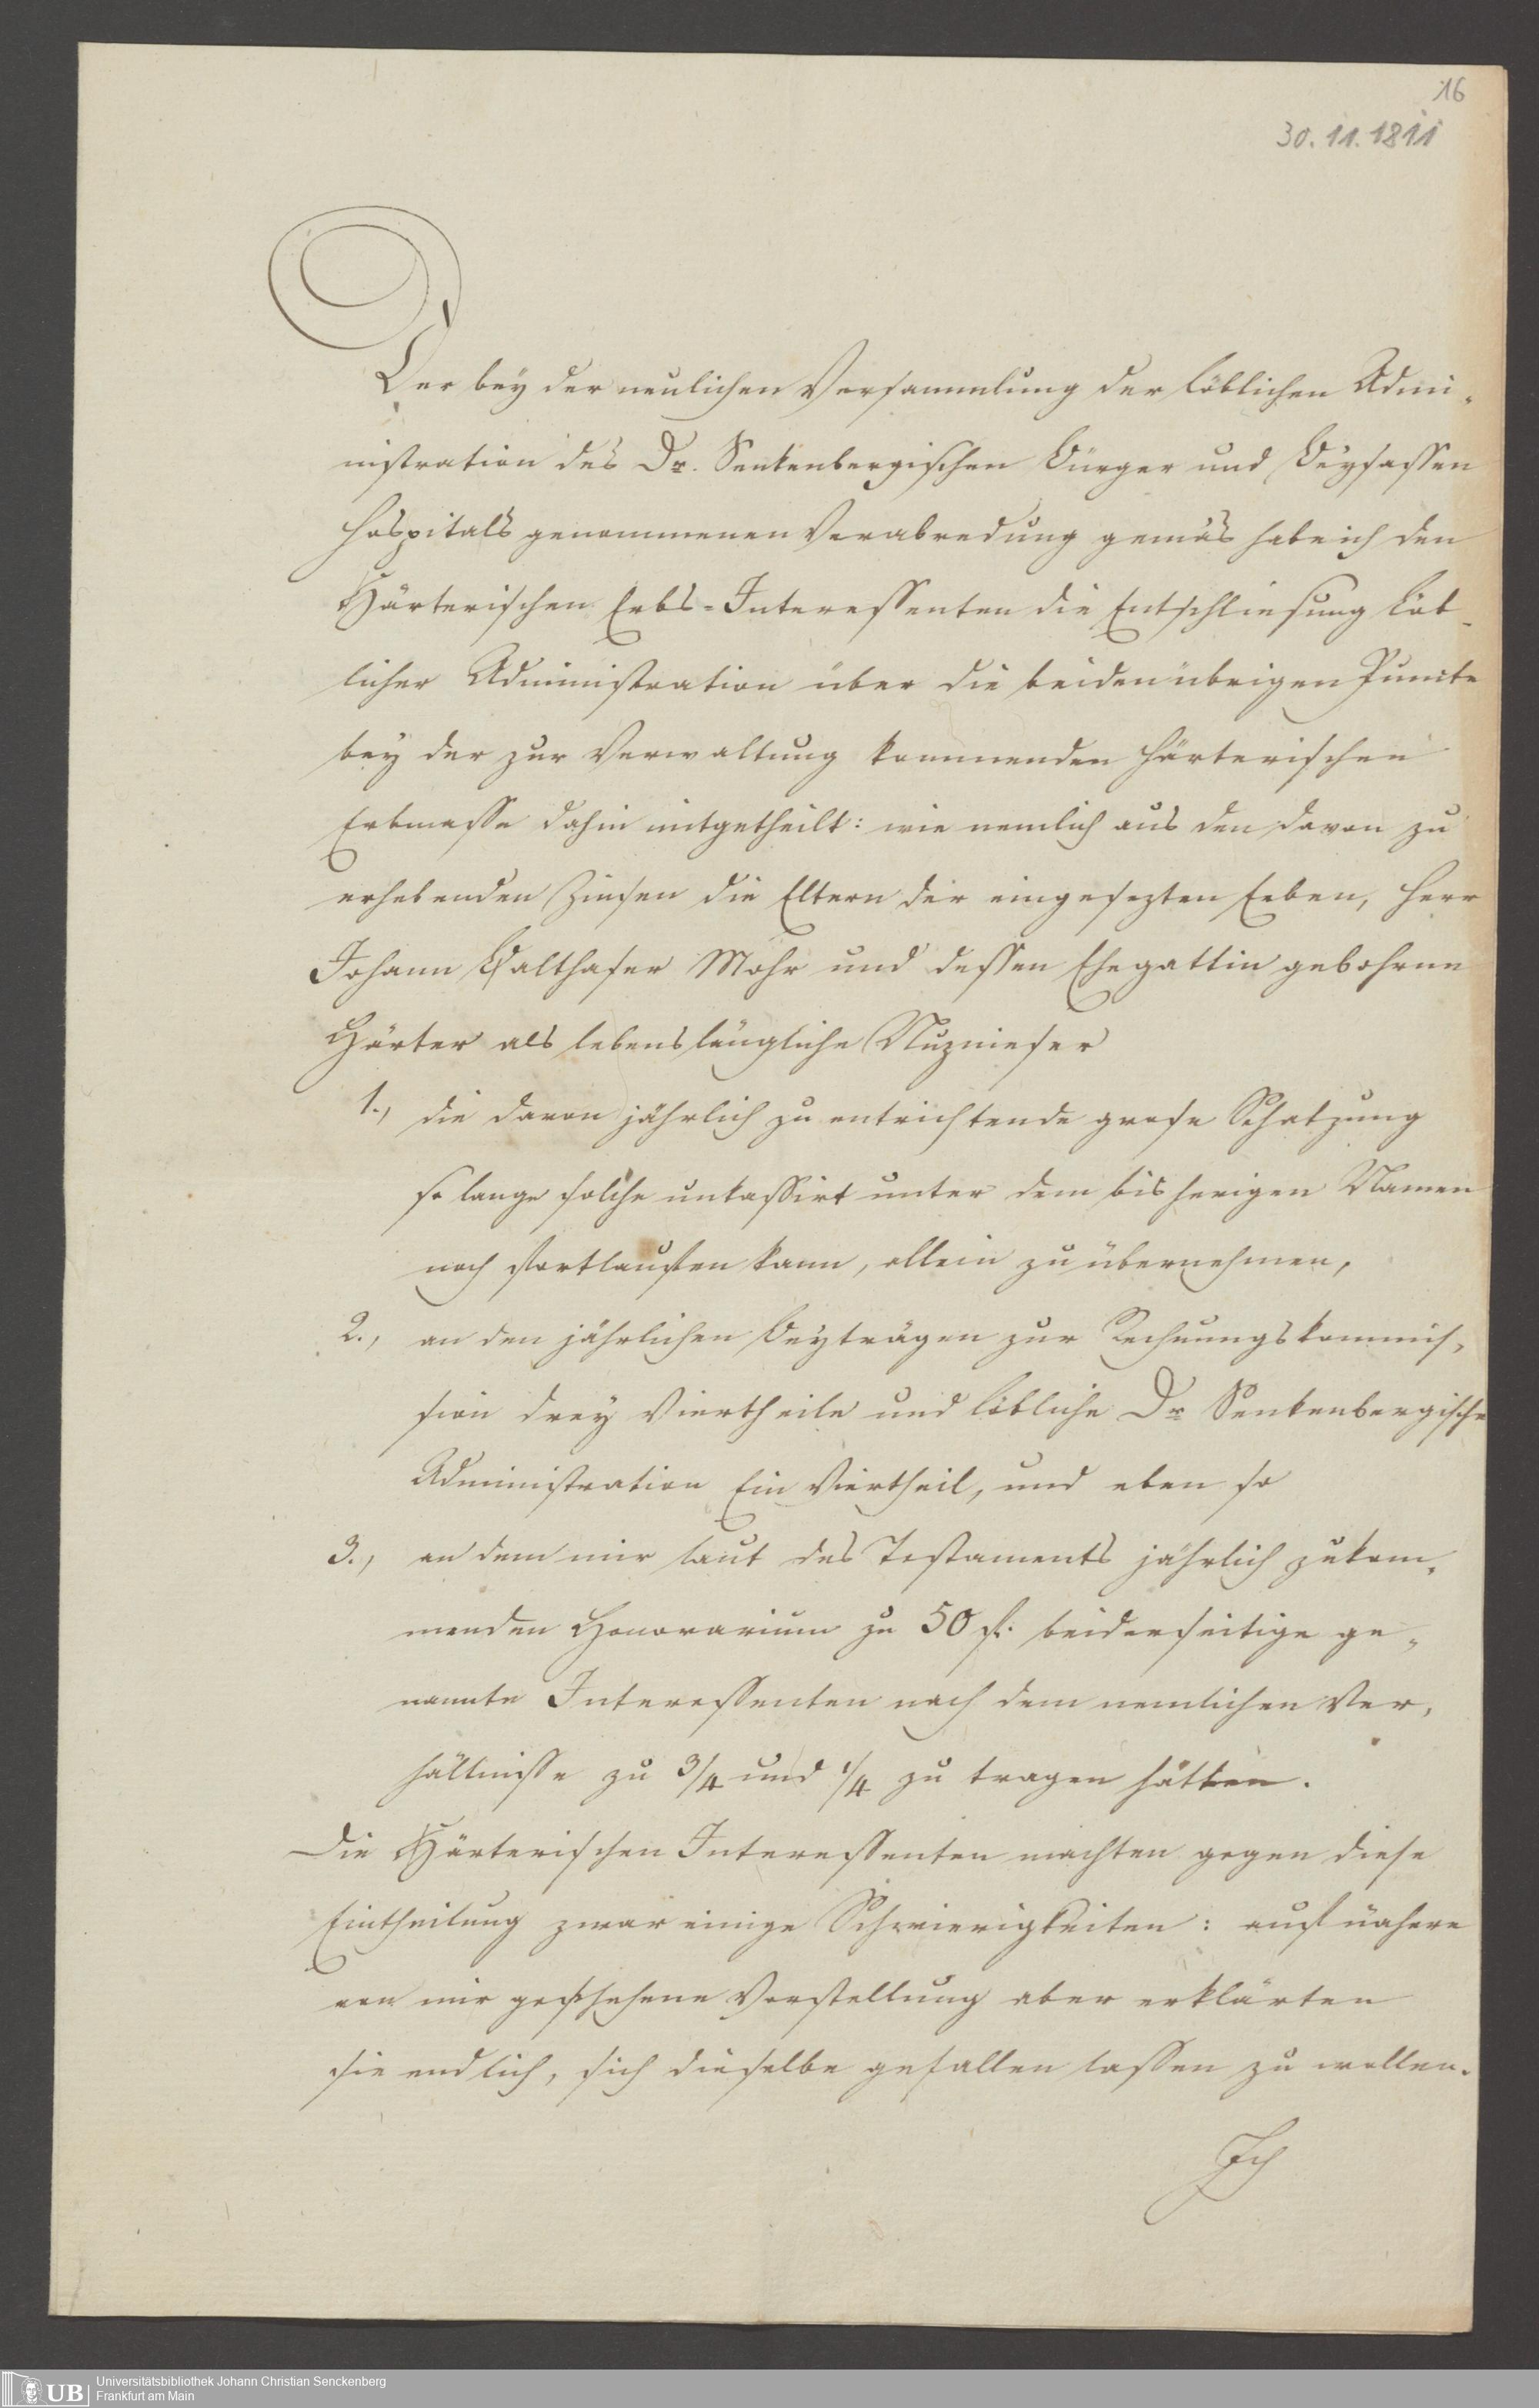 16
30.11.1811
Der bey der neulichen Versammlung der löblichen Admi-
nistration des Dr. Senkenbergischen Bürger und Beysassen
Hospitals genommenen Verabredung gemäs habe ich den
Härterischen Erbs-Interessenten die Entschliesung Löb-
licher Administration über die beiden übrigen Puncte
bey der zur Verwaltung kommenden Härterischen
Erbmasse dahin mitgetheilt: wie nemlich aus den davon zu
erhebenden Zinsen die Eltern der eingesezten Erben, Herr
Johann Balthaser Mohr und dessen Ehegattin gebohrne
Härter als lebenslängliche Nuznieser
1., die davon jährlich zu entrichtende grose Schatzung
so lange solche unkassirt unter dem bisherigen Namen
noch fortlaufen kann, allein zu übernehmen,
2., an den jährlichen Beyträgen zur Rechnungskommis-
sion drey Viertheile und löbliche Dr Senkenbergische
Administration Ein Viertheil, und eben so
3., an dem mir laut des Testaments jährlich zukom-
menden Honorarium zu 50 fl. beiderseitige ge-
nannte Interessenten nach dem nemlichen Ver-
hältnisse zu 3/4 und 1/4 zu tragen hätten.
Die Härterischen Interessenten machten gegen diese
Eintheilung zwar einige Schwierigkeiten: auf nähere
von mir geschehene Vorstellung aber erklärten
sie endlich, sich dieselbe gefallen lassen zu wollen.
Ich
UB Universitätsbibliothek Johann Christian Senckenberg
Frankfurt am Main